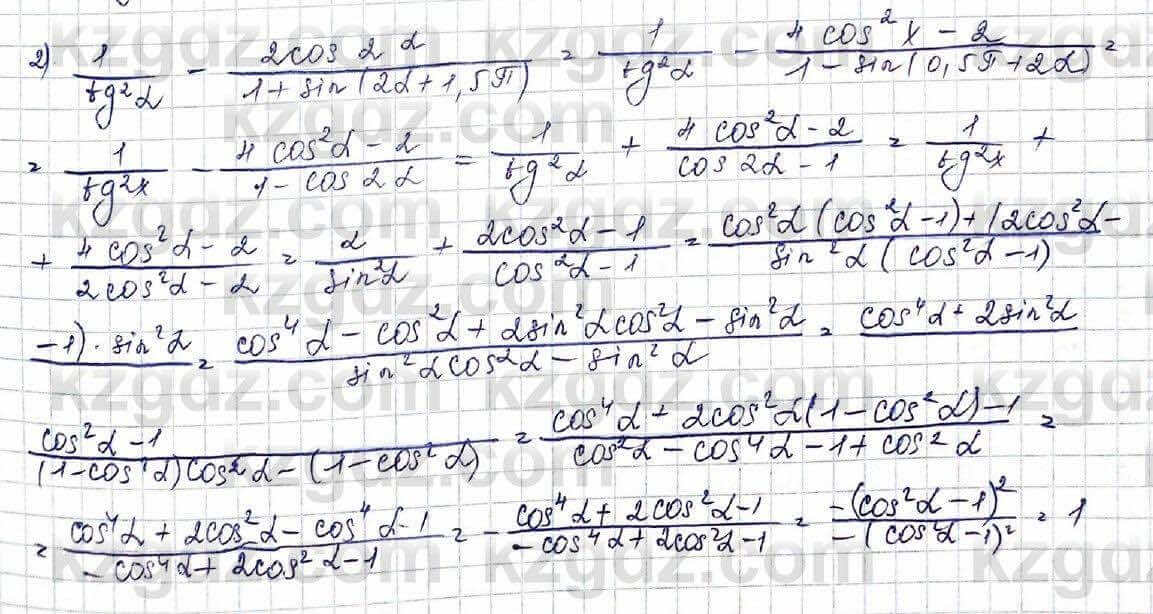 2) 1/tg²α - 2cos 2α/(1+sin(2α+1,5π)) = 1/tg²α - (4cos²x-2)/(1-sin(0,5π+2α)) =
= 1/tg²x - (4cos²α-2)/(1-cos2α) = 1/tg²α + (4cos²α-2)/(cos2α-1) = 1/tg²x +
+ (4cos²α-2)/(2cos²α-2) = α/sin²α + (2cos²α-1)/(cos²α-1) = cos²α(cos²α-1)+(2cos²α-/sin²α(cos²α-1)
-1)·sin²α = (cos⁴α-cos²α+2sin²αcos²α-sin²α)/(sin²αcos²α-sin²α) = cos⁴α+2sin²α
cos²α-1/(1-cos²α)cos²α-(1-cos²α) = (cos⁴α+2cos²α(1-cos²α)-1)/(cos²α-cos⁴α-1+cos²α) =
= (cos⁴α+2cos²α-cos⁴α-1)/(-cos⁴α+2cos²α-1) = (-cos⁴α+2cos²α-1)/(-cos⁴α+2cos²α-1) = -(cos²α-1)²/-(cos²α-1)² = 1
kzgdz.com